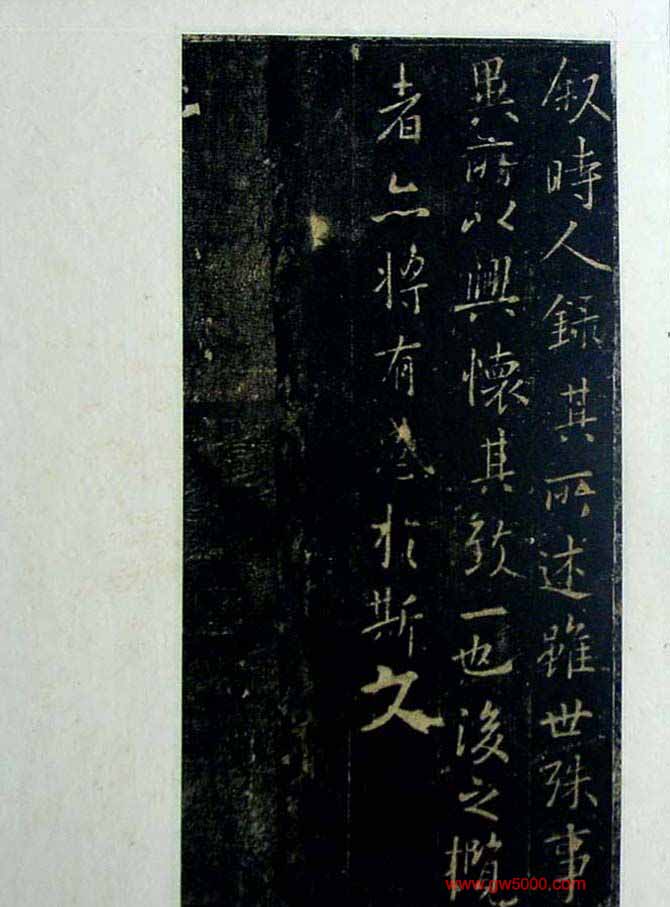 叙時人錄其所述雖世殊事
異所以興懷其致一也後之攬
者亦將有感於斯文
www.gw5000.com